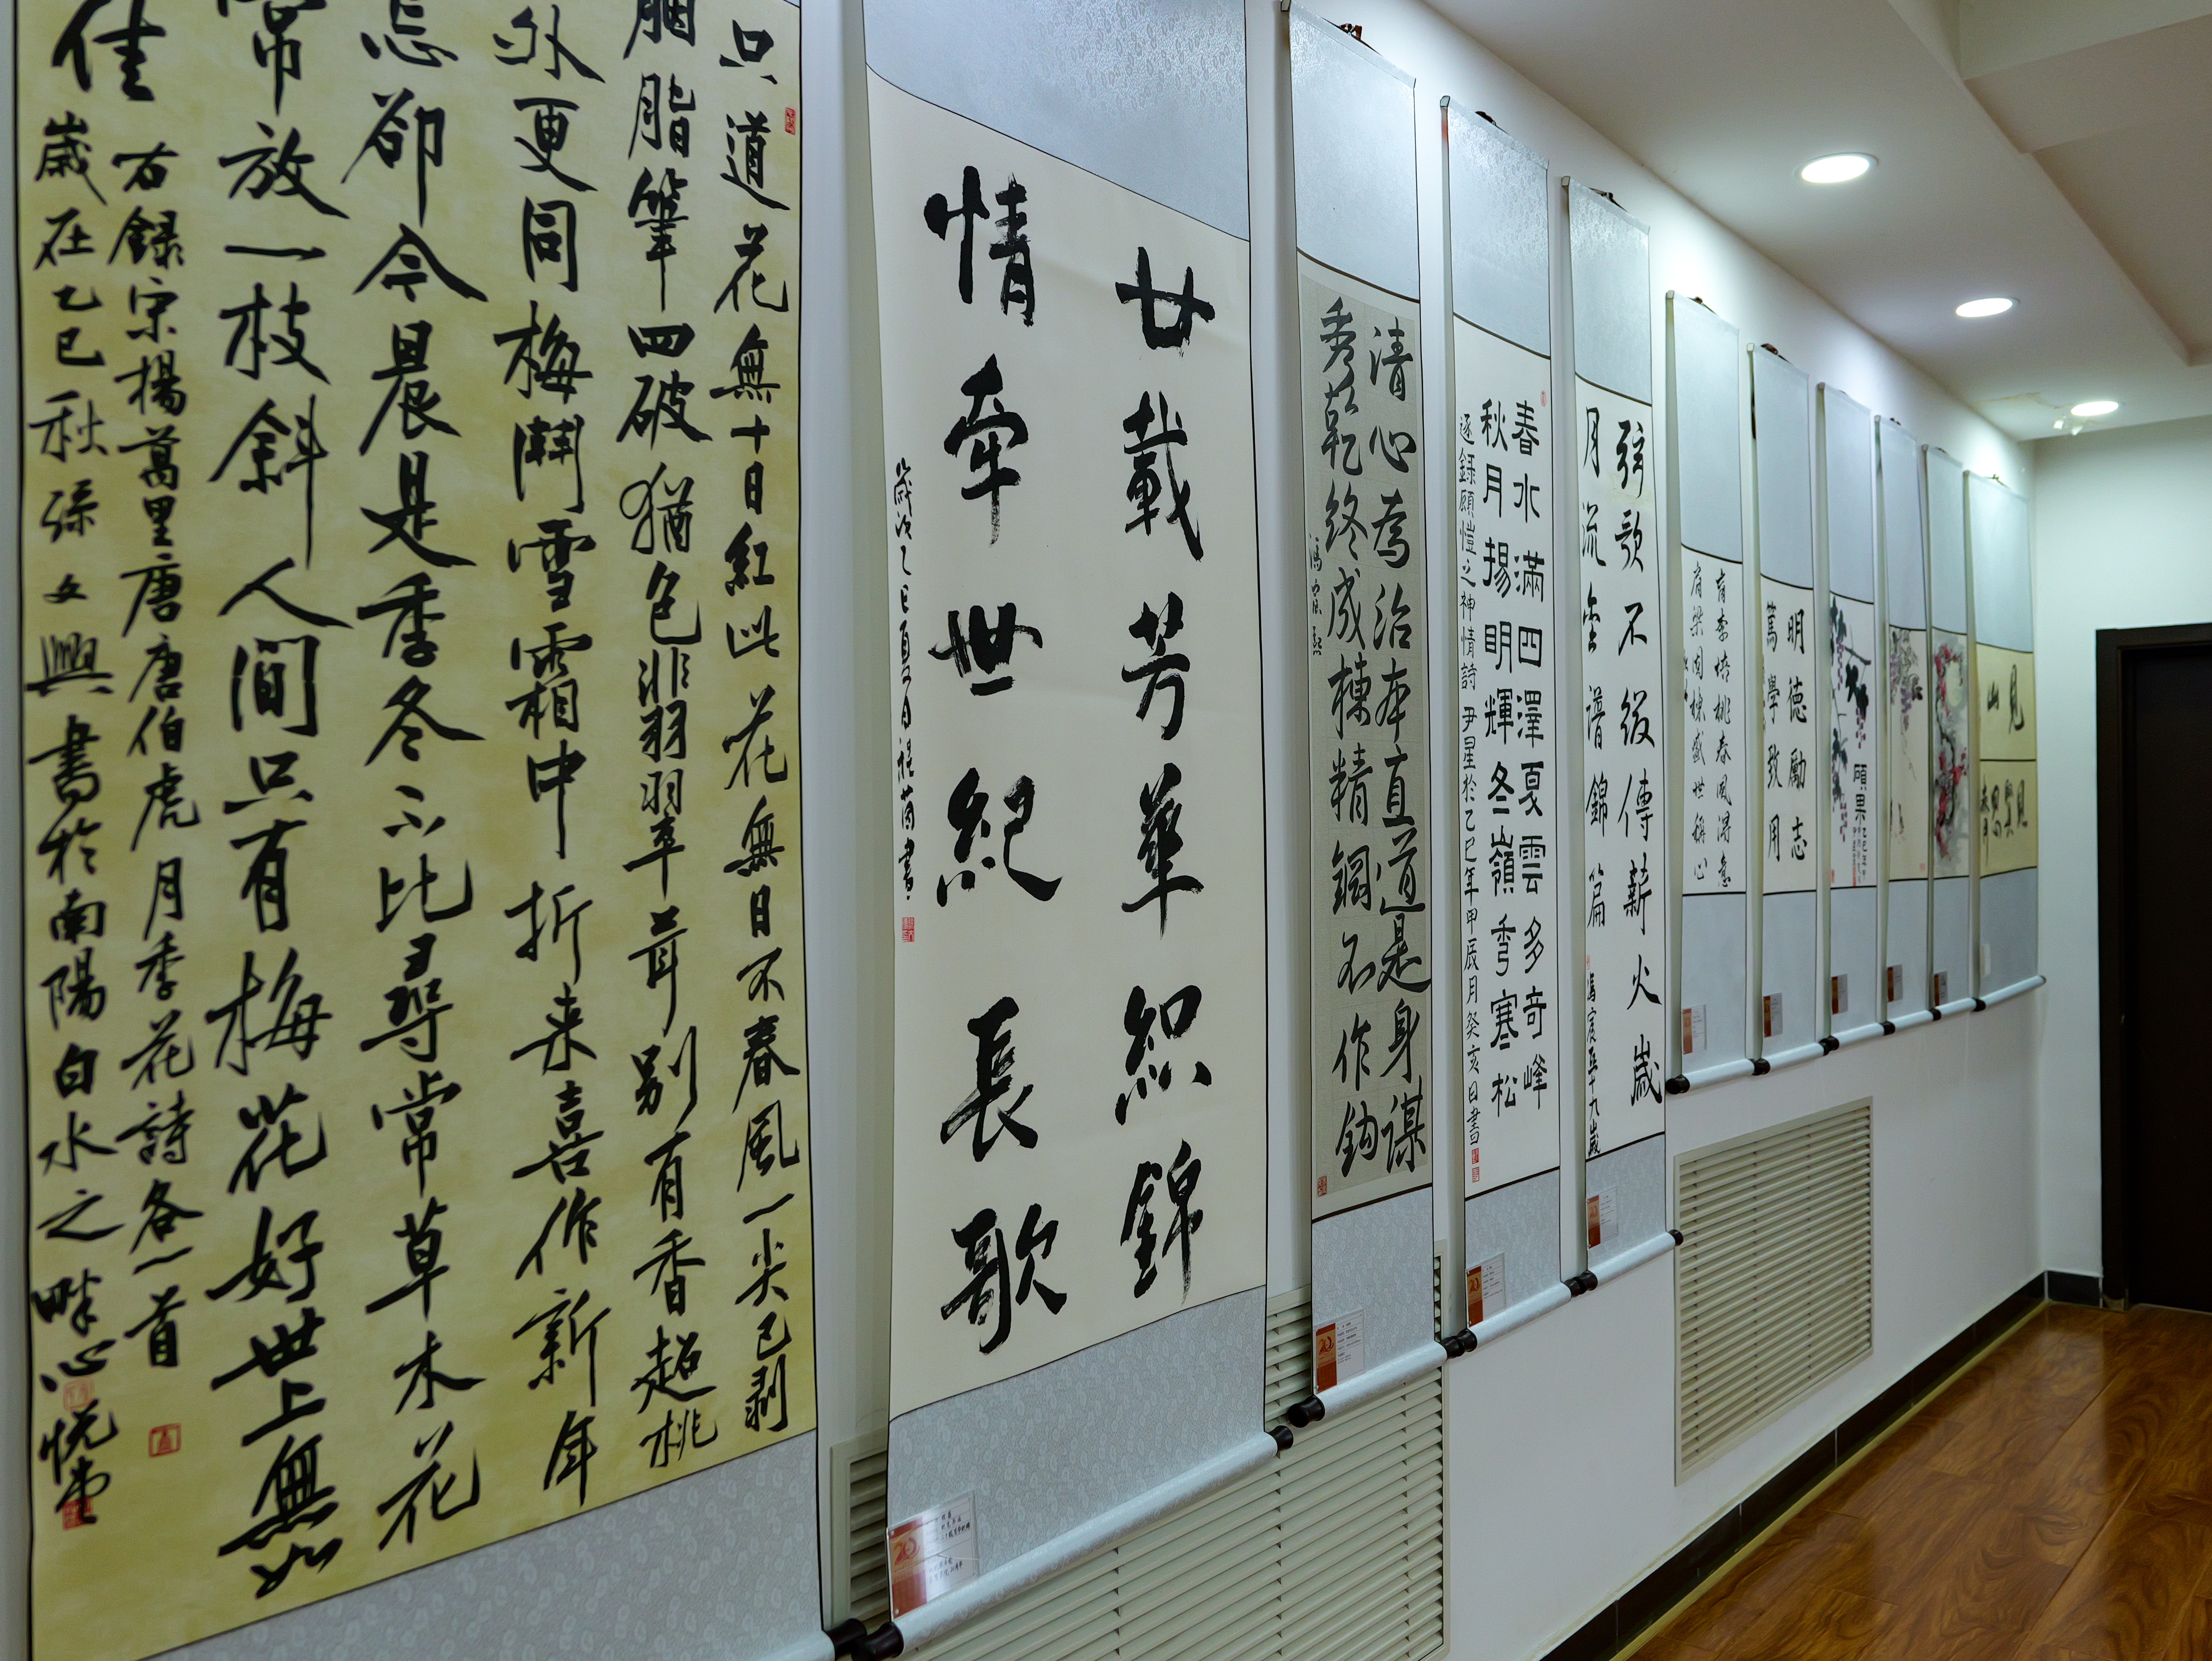 只道花無十日紅此花無日不春風一尖已剥
胭脂筆四破猶色非羽翠茸別有香超桃
外更同梅鬥雪霜中折来喜作新年
怎却今晨是季冬
不比尋常草木花
常放一枝斜人間只有梅花好世上無如
佳
右録宗楊萬里唐唐伯虎月季花詩各一首
歲在乙巳秋
興書於南陽白水之畔心悦堂
廿載芳華織錦
情牽世紀長歌
歲次乙巳夏月程茵書
清心為治本直道是身謀
秀乾終成棟精鋼不作鈎
春水滿四澤夏雲多奇峰
秋月揚明輝冬嶺秀寒松
逐録顧愷之神情詩 尹星於乙巳年甲辰月癸亥日書
弦歌不綴傳薪火歲
月流金譜錦篇
春風得意
盛世
明德勵志
篤學致用
碩果
見
山
見
思
齊